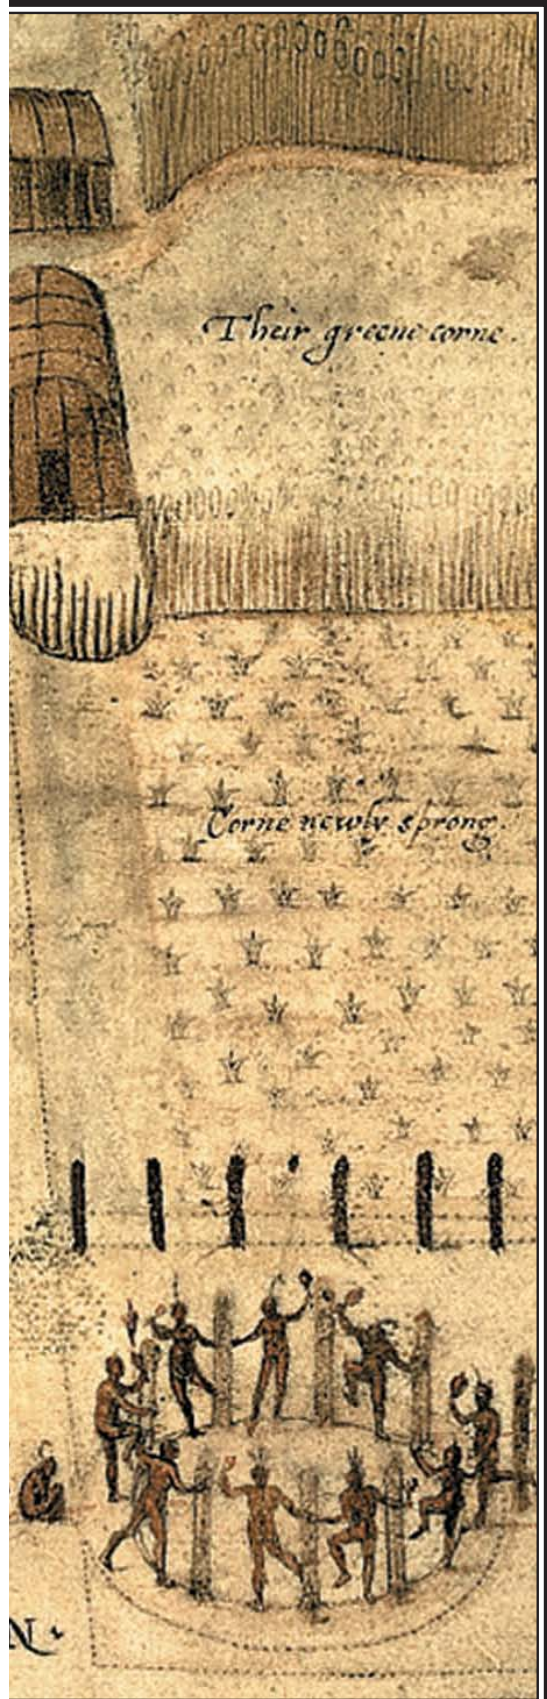 Their greene corne.
Corne newly sprong.
N.